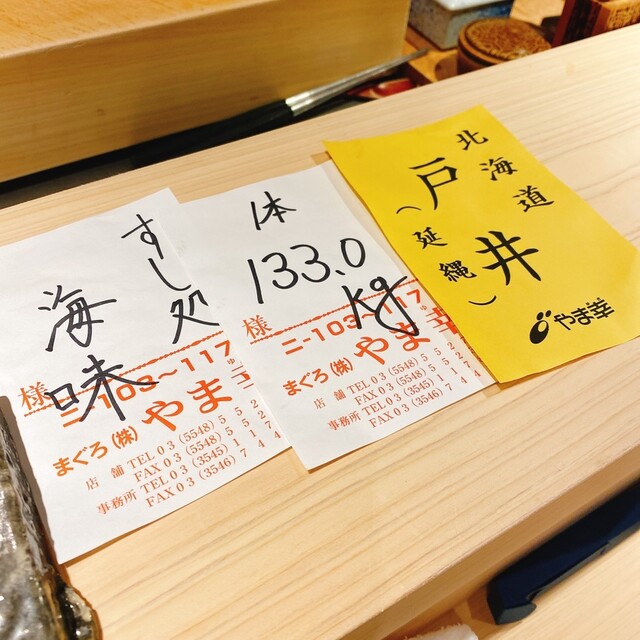 すし処
海味
様
ニ-103~117
まぐろ(株)やま
店舗 TEL 03(5548)552
FAX 03(5548)552
事務所 TEL 03(3545)117
FAX 03(3546)744
1本
133.0
kg
様
ニ-103 117
まぐろ(株)やま幸
店舗 TEL 03(5548)552
FAX 03(5548)552
事務所 TEL 03(3545)117
FAX 03(3546)74
北海道
戸井
(延縄)
やま幸